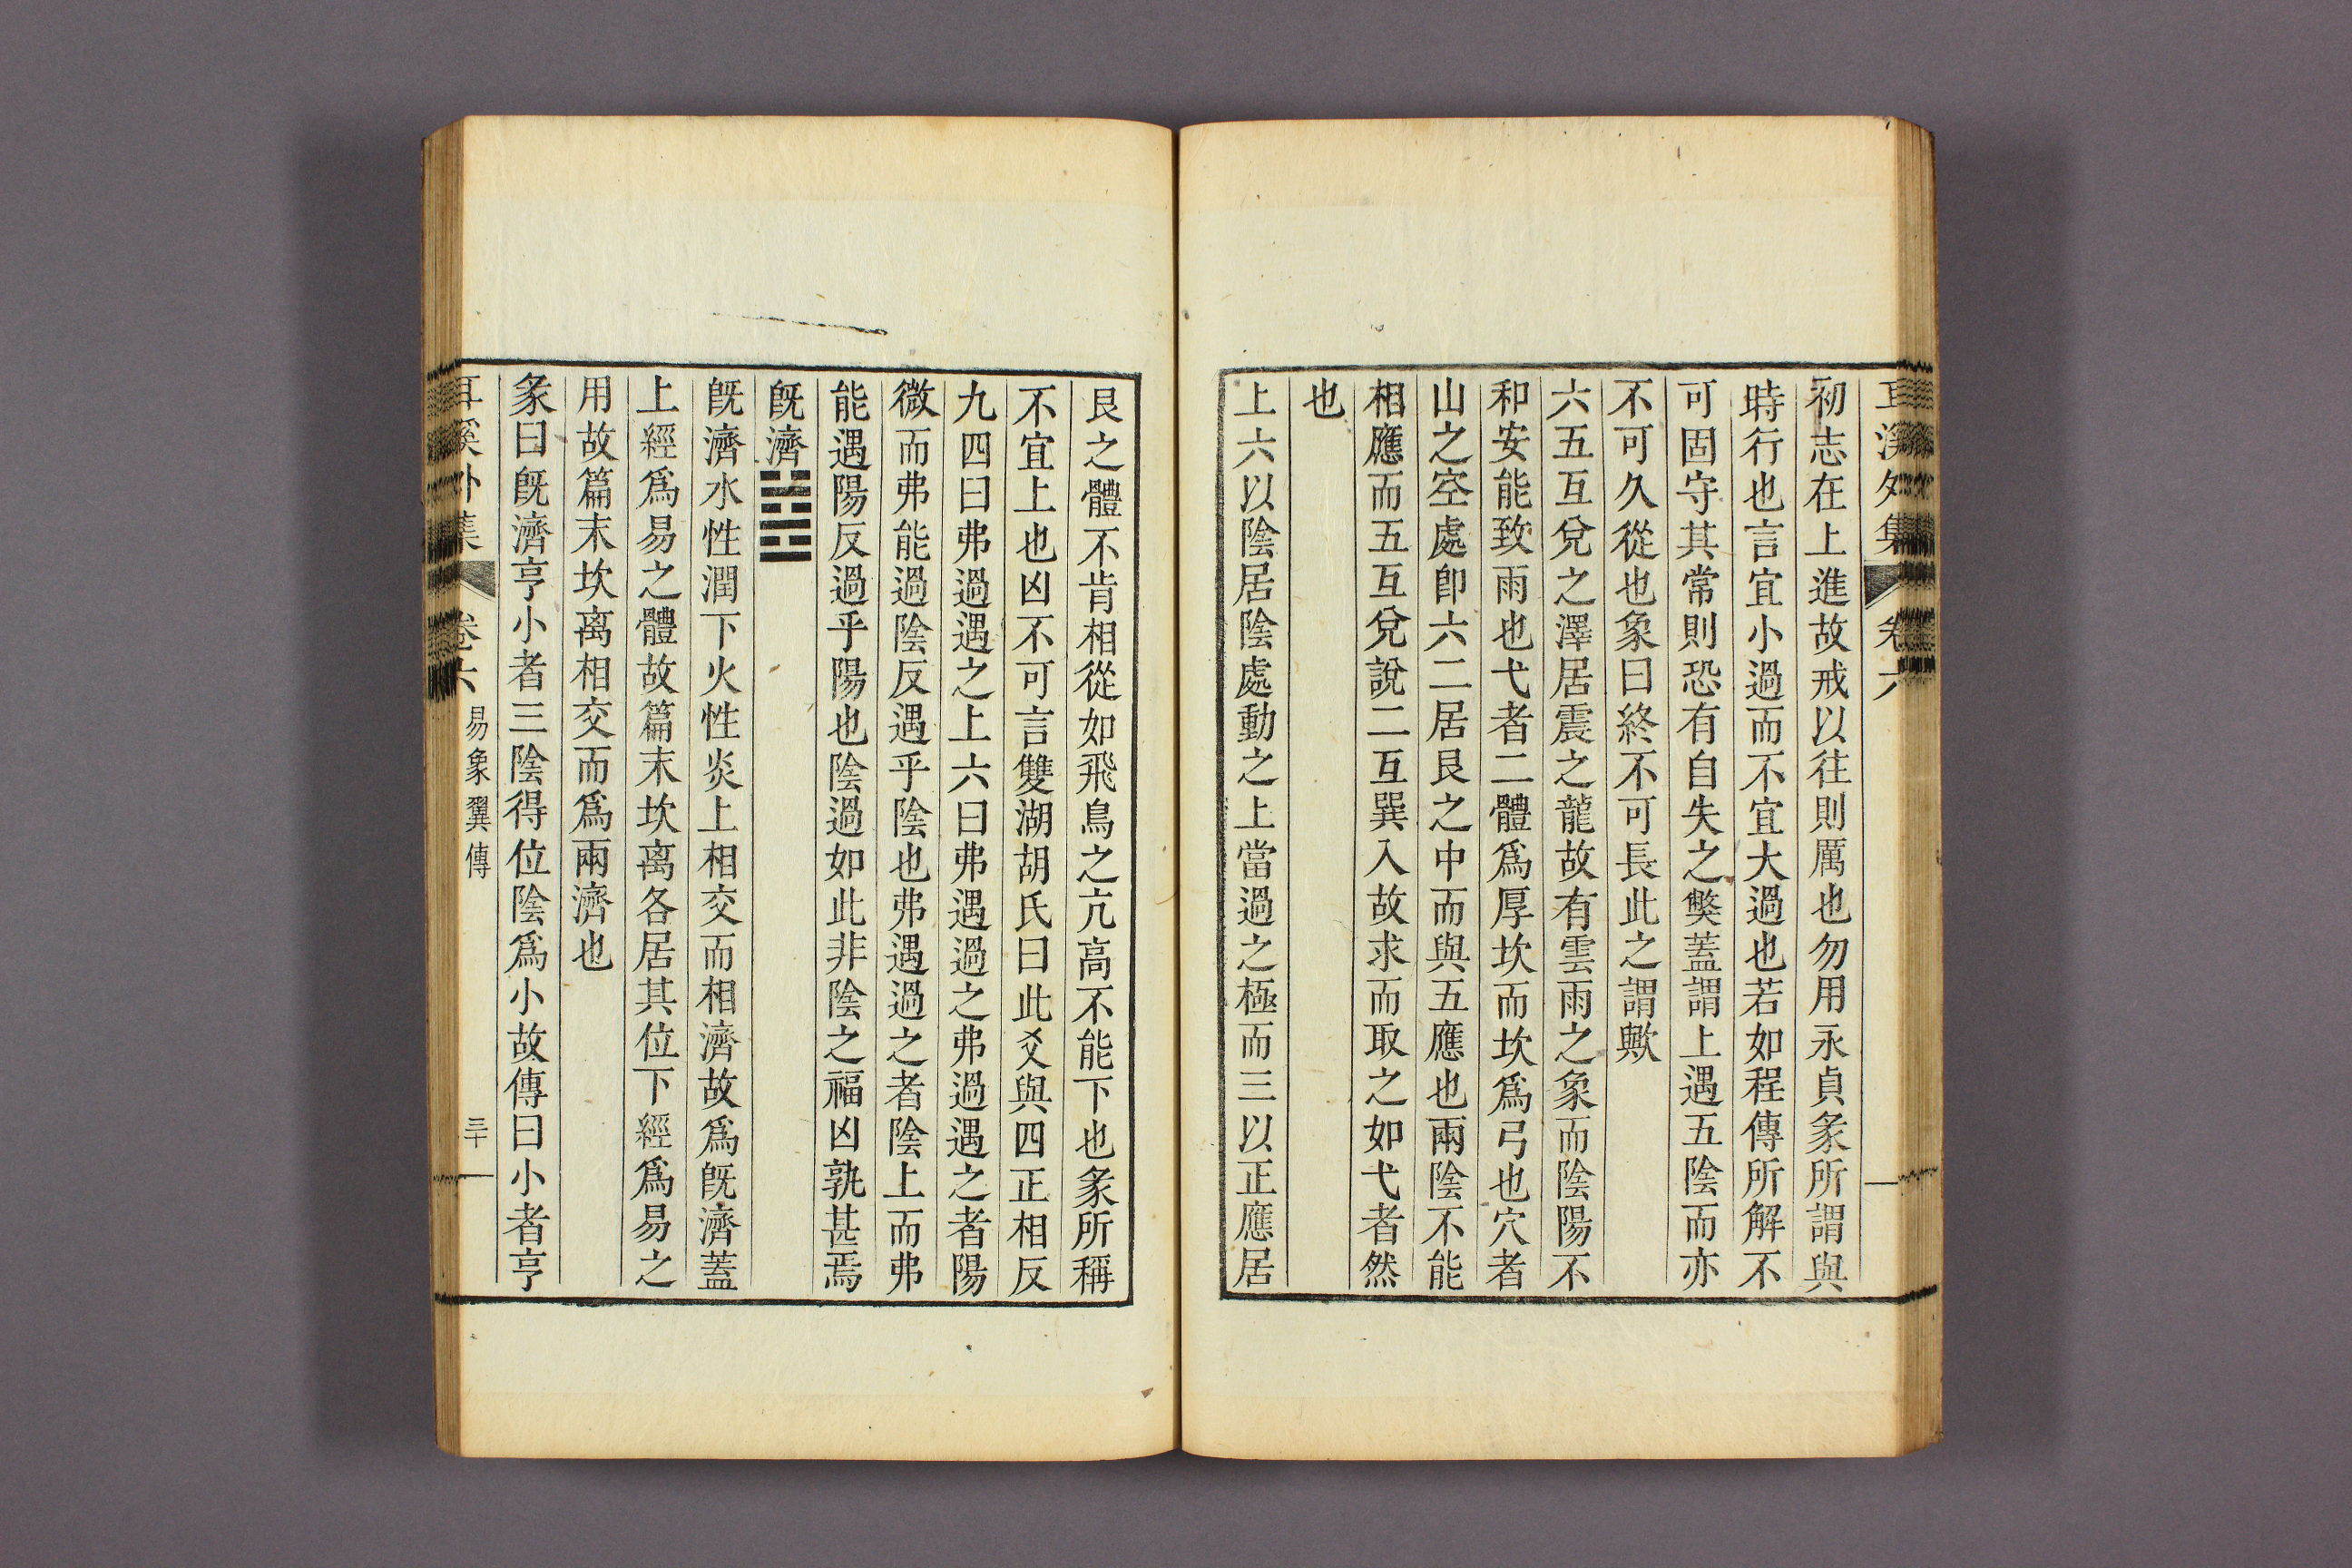 耳溪外集 卷六
初志在上進故戒以往則厲也勿用永貞彖所謂與
時行也言宜小過而不宜大過也若如程傳所解不
可固守其常則恐有自失之獘蓋謂上遇五陰而亦
不可久從也象曰終不可長此之謂歟
六五互兌之澤居震之龍故有雲雨之象而陰陽不
和安能致雨也弋者二體爲厚坎而坎爲弓也穴者
山之空處卽六二居艮之中而與五應也兩陰不能
相應而五互兌說二互巽入故求而取之如弋者然
也
上六以陰居陰處動之上當過之極而三以正應居
艮之體不肯相從如飛鳥之亢高不能下也彖所稱
不宜上也凶不可言雙湖胡氏曰此爻與四正相反
九四曰弗過遇之上六曰弗遇過之弗過遇之者陽
微而弗能過陰反遇乎陰也弗遇過之者陰上而弗
能遇陽反過乎陽也陰過如此非陰之福凶孰甚焉
旣濟䷾
旣濟水性潤下火性炎上相交而相濟故爲旣濟蓋
上經爲易之體故篇末坎离各居其位下經爲易之
用故篇末坎离相交而爲兩濟也
彖曰旣濟亨小者三陰得位陰爲小故傳曰小者亨
耳溪外集 卷六 易象翼傳 三十